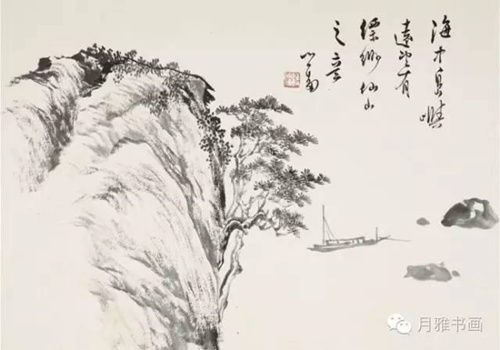 海中島嶼
遠望有
縹緲仙山
之意
心畬
月雅书画